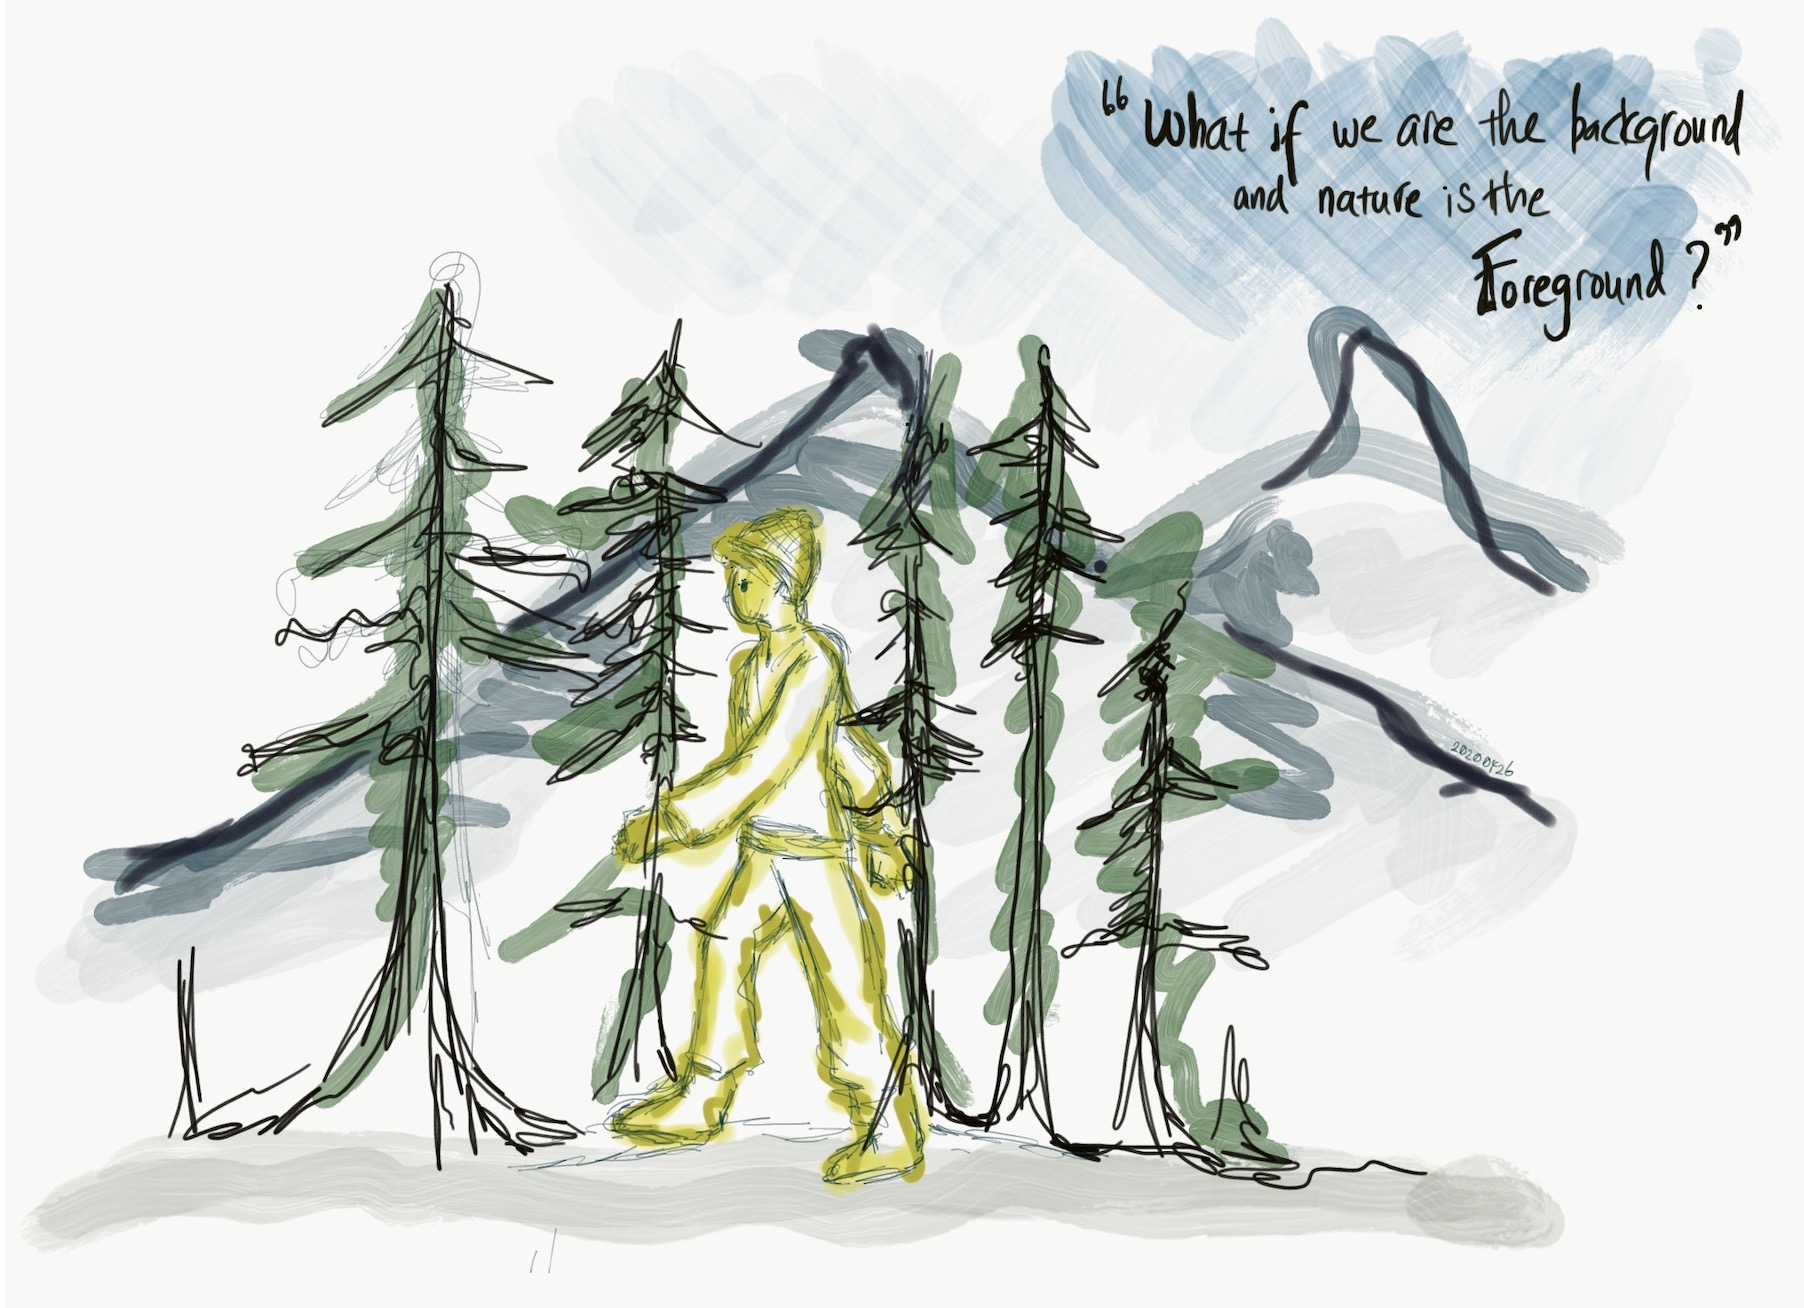 "What if we are the background
and nature is the
Foreground?"
20200426